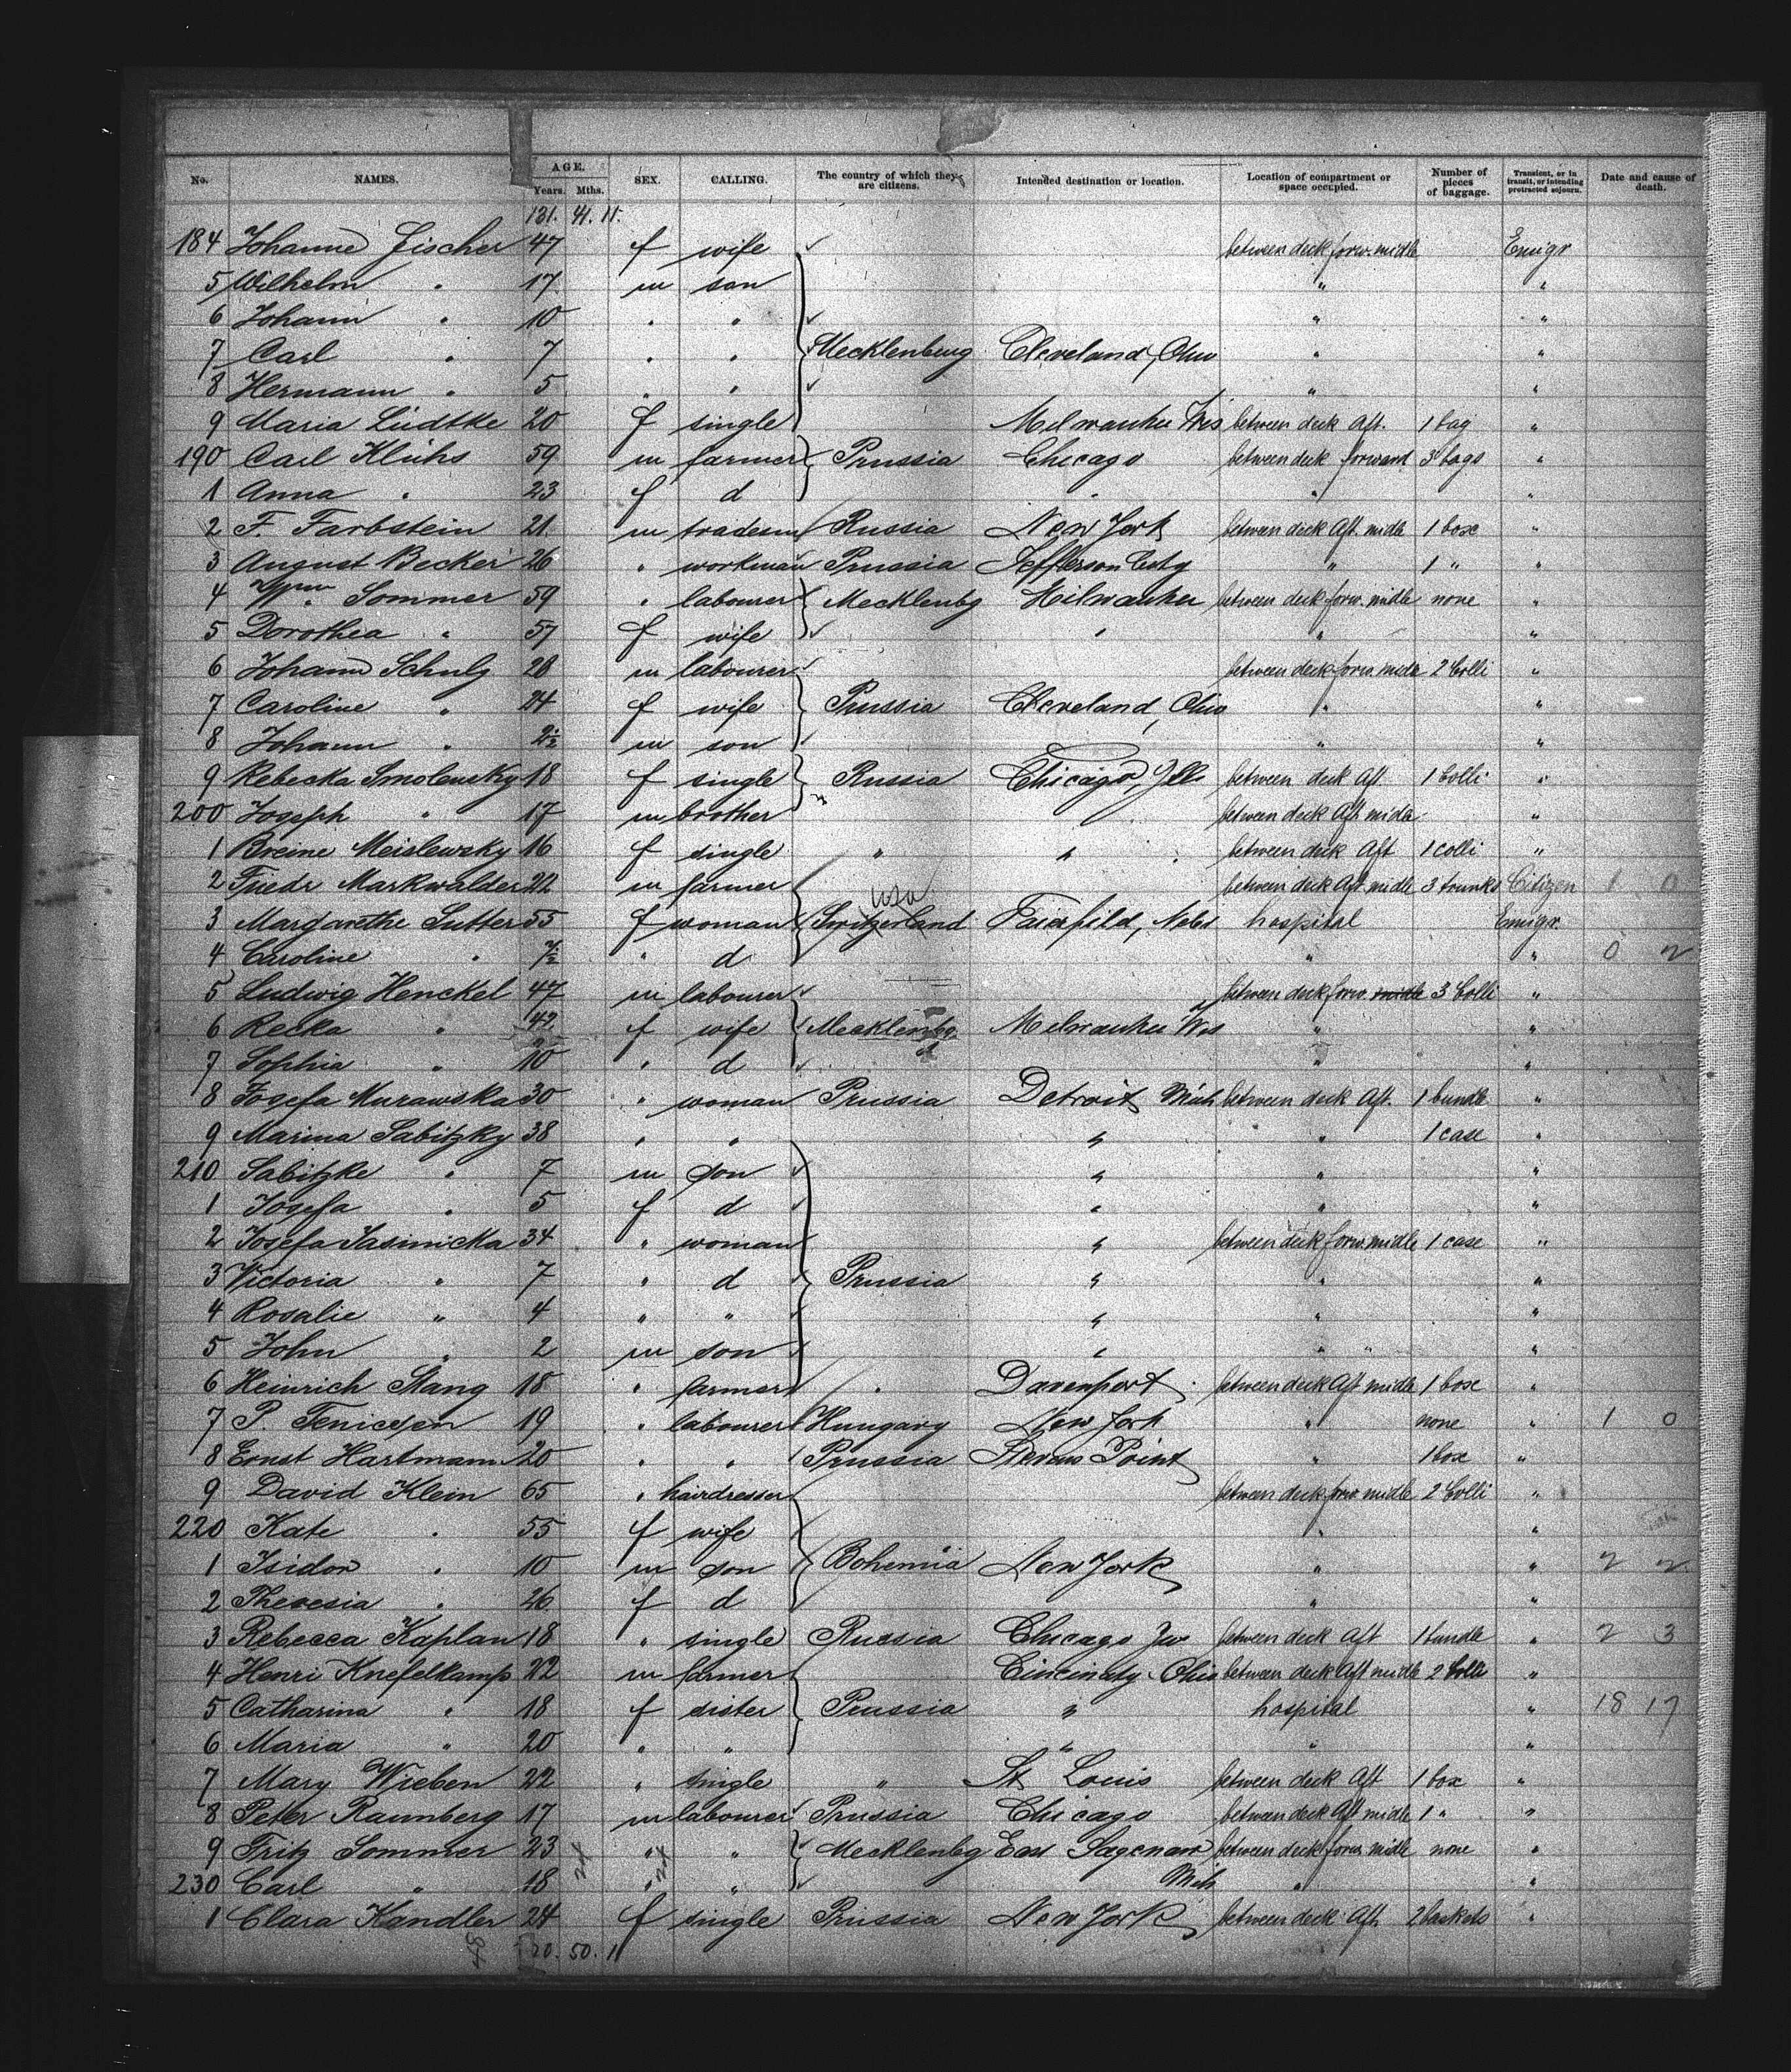 No. NAMES. AGE. Years. Mths. SEX. CALLING. The country of which they are citizens. Intended destination or location. Location of compartment or space occupied. Number of pieces of baggage. Transient, or in transit, or intending protracted sojourn. Date and cause of death.
131. 41. 11.
184 Johanne Fischer 47 f wife between deck forw. midle Emigr
5 Wilhelm " 17 m son " "
6 Johann " 10 " " " "
7 Carl " 7 " " Mecklenburg Cleveland, Ohio " "
8 Hermann " 5 " " " "
9 Maria Lüdtke 20 f single Milwaukee Wis between deck Aft. 1 bag "
190 Carl Klühs 59 m farmer Prussia Chicago between deck forward 3 bags "
1 Anna " 23 f d " " "
2 F. Farbstein 21 m tradesm Russia New York between deck Aft. midle 1 box "
3 August Becker 26 " workman Prussia Jefferson City " 1 " "
4 Sommer 59 " labourer Mecklenbg Milwaukee between deck forw. midle none "
5 Dorothea " 57 f wife " " "
6 Johann Schulz 28 m labourer between deck forw. midle 2 Colli "
7 Caroline " 24 f wife Prussia Cleveland, Ohio " "
8 Johann " 2½ m son " "
9 Rebecka Smolensky 18 f single Russia Chicago, Ills between deck Aft 1 Colli "
200 Joseph " 17 m brother between deck Aft midle "
1 Breine Meislewsky 16 f single " " between deck Aft 1 colli "
2 Friedr Markwalder 22 m farmer USA between deck Aft midle 3 trunks Citizen 1 0
3 Margarethe Sutter 55 f woman Switzerland Fairfild, Nebr hospital Emigr.
4 Caroline " " d " " 0 2
5 Ludwig Henckel 47 m labourer between deck forw. midle 3 Colli "
6 Recka " 42 f wife Mecklenbg Milwaukee Wis " "
7 Sophia " 10 " d " "
8 Josefa Murawska 30 " woman Prussia Detroit Mich between deck Aft. 1 bundle "
9 Marina Sabitzky 38 " " " " 1 case "
210 Sabitzke " 7 m son " " "
1 Josefa " 5 f d " " "
2 Josefa Jasinicka 34 " woman " between deck forw. midle 1 case "
3 Victoria " 7 " d Prussia " " "
4 Rosalie " 4 " " " " "
5 John " 2 m son " " " "
6 Heinrich Stang 18 " farmer " Davenport between deck Aft midle 1 box "
7 P. 19 " labourer Hungary New York " none " 1 0
8 Ernst Hartmann 20 " " Prussia Stevens Point " 1 box "
9 David Klein 65 " hairdresser between deck forw midle 2 Colli "
220 Kate " 55 f wife " "
1 Isidor " 10 m son Bohemia New York " " 2 2
2 Theresia " 26 f d " "
3 Rebecca Kaplan 18 " single Russia Chicago between deck Aft 1 bundle " 2 3
4 Henri Knefelkamp 22 m farmer Cincinaty Ohio between deck Aft midle 2 Colli "
5 Catharina " 18 f sister Prussia " hospital " 18 17
6 Maria " 20 " " " " "
7 Mary Wieben 22 " single " St Louis between deck Aft 1 box "
8 Peter Raunberg 17 m labourer Prussia Chicago between deck Aft midle 1 " "
9 Fritz Sommer 23 " " Mecklenbg East Sagenaw between deck forw midle none "
230 Carl " 18 " " Mich " "
1 Clara Kandler 24 f single Prussia New York between deck Aft 2 baskets "
20. 50. 11